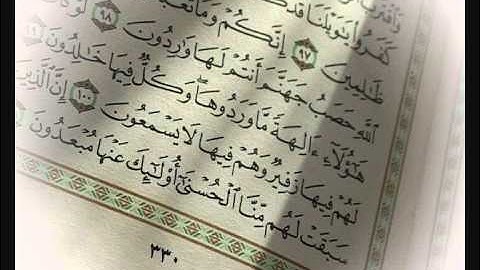 كَفَرُوا۟ يَٰوَيْلَنَا قَدْ
ظَٰلِمِينَ ٩٧ إِنَّكُمْ وَمَا
ٱللَّهِ حَصَبُ جَهَنَّمَ أَنتُمْ لَهَا وَٰرِدُونَ ٩٨ لَوْ
هَٰٓؤُلَآءِ ءَالِهَةً مَّا وَرَدُوهَا ۖ وَكُلٌّ فِيهَا خَٰلِدُونَ ٩٩
لَهُمْ فِيهَا زَفِيرٌ وَهُمْ فِيهَا لَا يَسْمَعُونَ ١٠٠ إِنَّ ٱلَّذِينَ
سَبَقَتْ لَهُم مِّنَّا ٱلْحُسْنَىٰٓ أُو۟لَٰٓئِكَ عَنْهَا مُبْعَدُونَ
٣٣٠